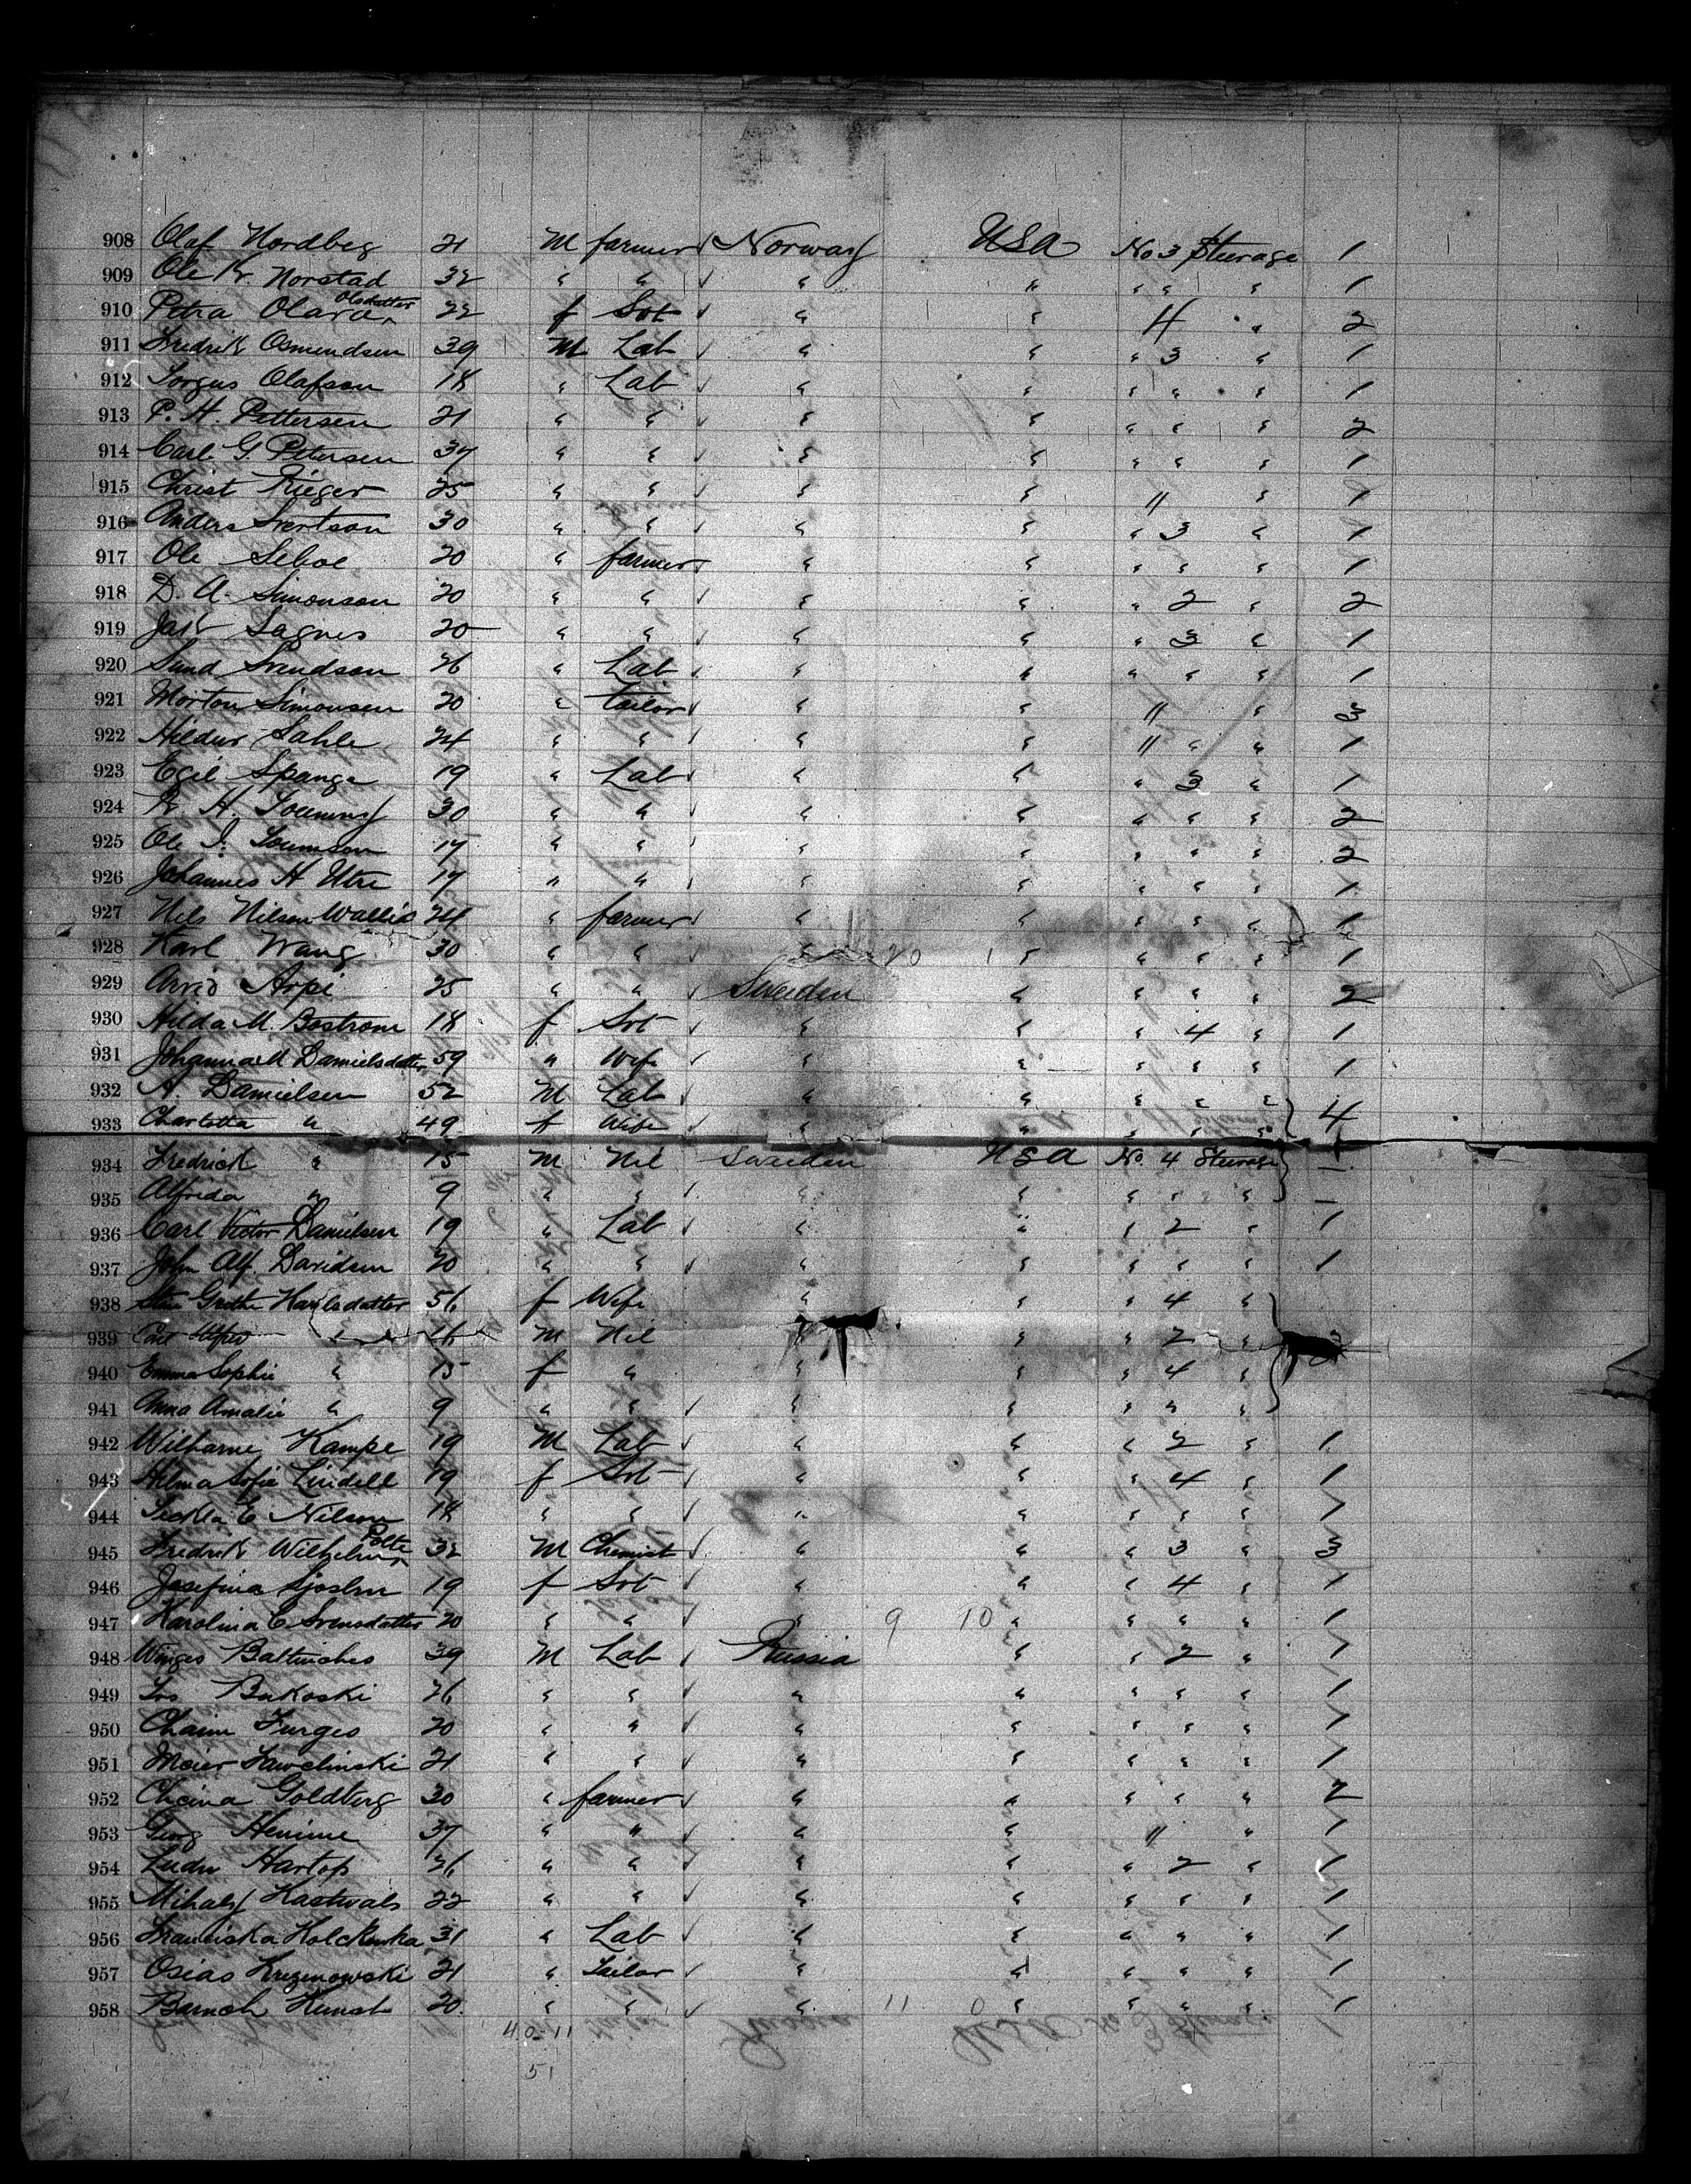 908 Olaf Nordbeg 21 M farmer Norway USA No 3 Steerage 1
909 Ole K. Norstad 32 " " " " " " " 1
Olsdatter
910 Petra Olava 22 f Svt " " 4 " " 2
911 Fredrik Osmundsen 39 M Lab " " " 3 " 1
912 Olafsen 18 " Lab " " " " " 1
913 P. H. Pettersen 21 " " " " " " " 2
914 Carl G. Petersen 37 " " " " " " " 1
915 Christ Rieger 25 " " " " " " 1
916 Anders 30 " " " " " 3 " 1
917 Ole Seboe 20 " farmer " " " " " 1
918 D. A. Simonson 20 " " " " " 2 " 2
919 Jak Sagnes 20 " " " " " 3 " 1
920 Svendsen 26 " Lab " " " " " 1
921 Morton Simonsen 20 " tailor " " " " 3
922 Hildur Sahle 24 " " " " " " " 1
923 Egil Spange 19 " Lab " " " 3 " 1
924 H. 30 " " " " " " " 2
925 Ole 17 " " " " " " " 2
926 Johannes H Utre 17 " " " " " " " 1
927 Nils Nilsen Wallie 24 " farmer " " " " " 1
928 Karl Wang 30 " " " 20 1 " " " " 1
929 Arvid Arpi 25 " " Sweden " " " " 2
930 Hilda M. Bostrom 18 f Svt " " " 4 " 1
931 Johanna M Danielsdatter 59 " Wife " " " " " 1
932 A. Danielsen 52 M Lab " " " " "
933 Charlotta " 49 f Wife " " " " " 4
934 Fredrick " 15 M Nil Sweden USA No. 4 Steerage —
935 Alfrida " 9 " " " " " " " —
936 Carl Victor Danielsen 19 " Lab " " " 2 " 1
937 John Alf. Davidsen 20 " " " " " " " 1
938 Grethe 56 f Wife " " " 4 "
939 Carl Alfred " 16 M Nil " " " 2 "
940 Emma Sophie " 15 f " " " " 4 "
941 Anna Amalie " 9 " " " " " " "
942 Kampe 19 M Lab " " " 2 " 1
943 Hilma Sofia Lindell 19 f Svt " " " 4 " 1
944 E Nilson 18 " " " " " " " 1
Polte
945 Fredrik Wilhelm 32 M Chemist " " " 3 " 3
946 Josefina 19 f Svt " " " 4 " 1
947 Karolina C Svensdatter 20 " " " 9 10 " " " " 1
948 39 M Lab Russia " " 2 " 1
949 Bukoski 26 " " " " " " " 1
950 Chaim Furges 20 " " " " " " " 1
951 Meier 21 " " " " " " " 1
952 Goldberg 30 " farmer " " " " " 2
953 Georg 37 " " " " " " 1
954 Hartop 26 " " " " " 2 " 1
955 Mihaly 22 " " " " " " " 1
956 Franciska 31 " Lab " " " " " 1
957 Osias 21 " Tailor " " " " " 1
958 20 " " " 11 0 " " " " 1
40 11
51